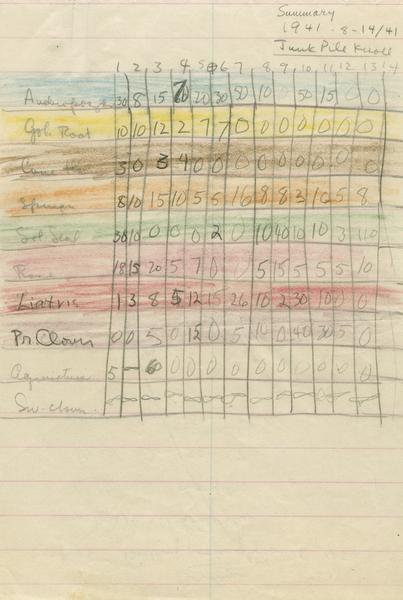 Summary
1941 - 8-14/41
Junk Pile Knoll
1 2 3 4 5 6 7 8 9 10 11 12 13 14
30 8 15 20 30 50 10 0 50 15 0 0
Gol. Rod 10 10 12 2 7 7 0 0 0 0 0 0 0
3 0 3 4 0 0 0 0 0 0 0 0 0
Spurge 8 10 15 10 5 5 16 8 8 3 16 5 8
Sol Seal 30 10 0 0 0 2 0 10 40 10 10 3 110
Rose 18 15 20 5 7 0 0 5 15 5 5 5 10
Liatris 1 3 8 5 12 15 26 10 2 30 10 0 0
Pr. Clover 0 0 5 0 12 0 5 10 0 40 30 5 0
5 - 6 0 0 0 0 0 0 0 0 0 0
Sw-clover